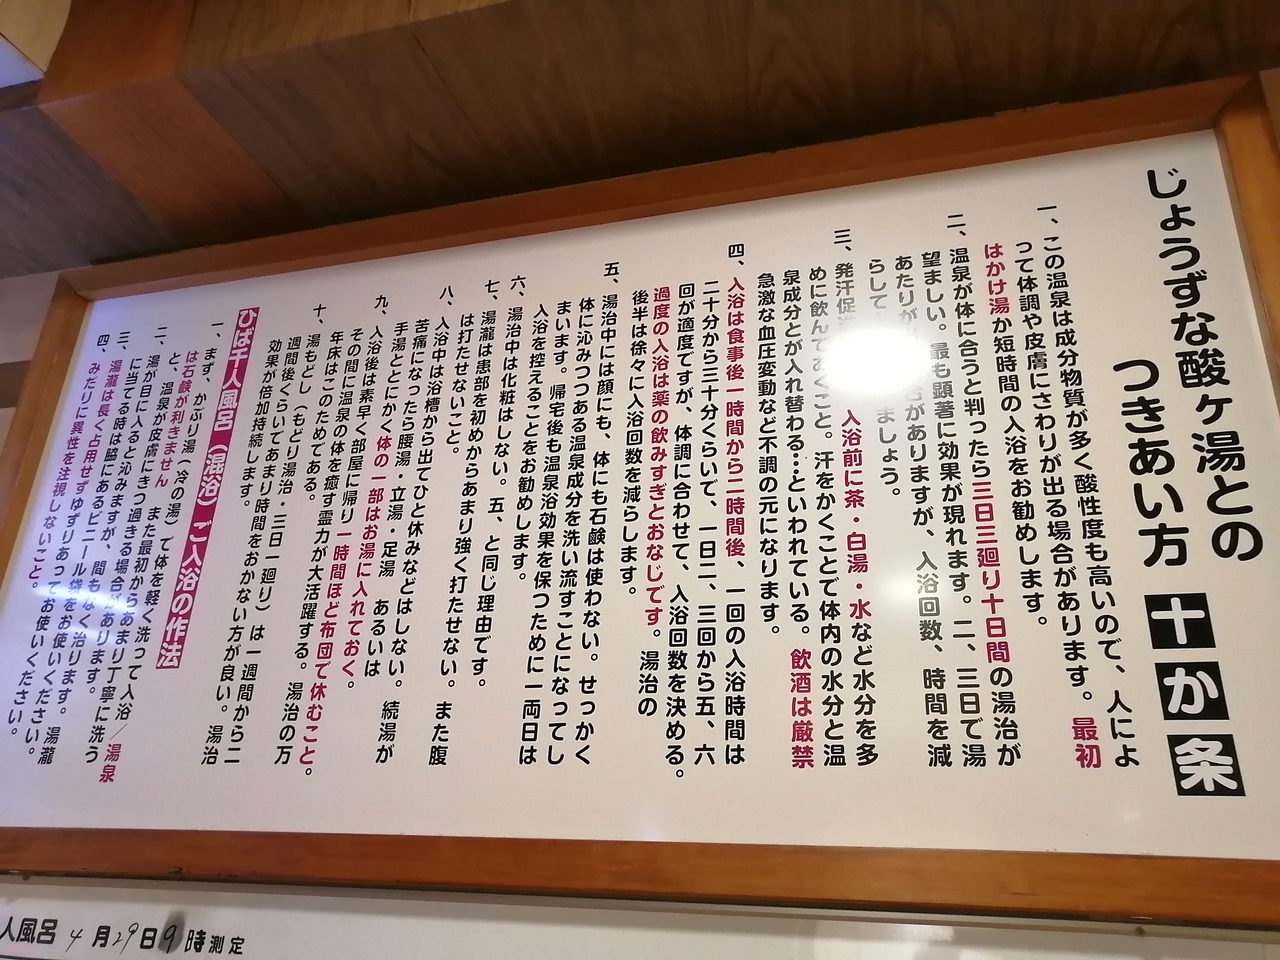 じょうずな酸ヶ湯との
つきあい方 十か条
一、この温泉は成分物質が多く酸性度も高いので、人によ
って体調や皮膚にさわりが出る場合があります。最初
はかけ湯か短時間の入浴をお勧めします。
二、温泉が体に合うと判ったら三日三廻り十日間の湯治が
望ましい。最も顕著に効果が現れます。二、三日で湯
あたりが出る場合がありますが、入浴回数、時間を減
らして ましょう。
三、発汗促進 入浴前に茶・白湯・水など水分を多
めに飲んでおくこと。汗をかくことで体内の水分と温
泉成分とが入れ替わる…といわれている。飲酒は厳禁
急激な血圧変動など不調の元になります。
四、入浴は食事後一時間から二時間後、一回の入浴時間は
二十分から三十分くらいで、一日二、三回から五、六
回が適度ですが、体調に合わせて、入浴回数を決める。
過度の入浴は薬の飲みすぎとおなじです。湯治の
後半は徐々に入浴回数を減らします。
五、湯治中には顔にも、体にも石鹸は使わない。せっかく
体に沁みつつある温泉成分を洗い流すことになってし
まいます。帰宅後も温泉浴効果を保つために一両日は
入浴を控えることをお勧めします。
六、湯治中は化粧はしない。五、と同じ理由です。
七、湯瀧は患部を初めからあまり強く打たせない。また腹
は打たせないこと。
八、入浴中は浴槽から出てひと休みなどはしない。続湯が
苦痛になったら腰湯・立湯・足湯 あるいは
手湯ととにかく体の一部はお湯に入れておく。
九、入浴後は素早く部屋に帰り一時間ほど布団で休むこと。
その間に温泉の体を癒す霊力が大活躍する。湯治の万
年床はこのためである。
十、湯もどし（もどり湯治・三日一廻り）は一週間から二
週間後くらいであまり時間をおかない方が良い。湯治
効果が倍加持続します。
ひば千人風呂（混浴）ご入浴の作法
一、まず、かぶり湯（冷の湯）で体を軽く洗って入浴／湯泉
は石鹸が利きません また最初からあまり丁寧に洗う
と、温泉が皮膚にきつ過ぎる場合があります。
二、湯が目に入ると沁みますが、間もなく治ります。湯瀧
に当てる時は脇にあるビニール袋をお使いください。
三、湯瀧は長く占用せずゆずりあってお使いください。
四、みだりに異性を注視しないこと。
人風呂 4月29日9時測定